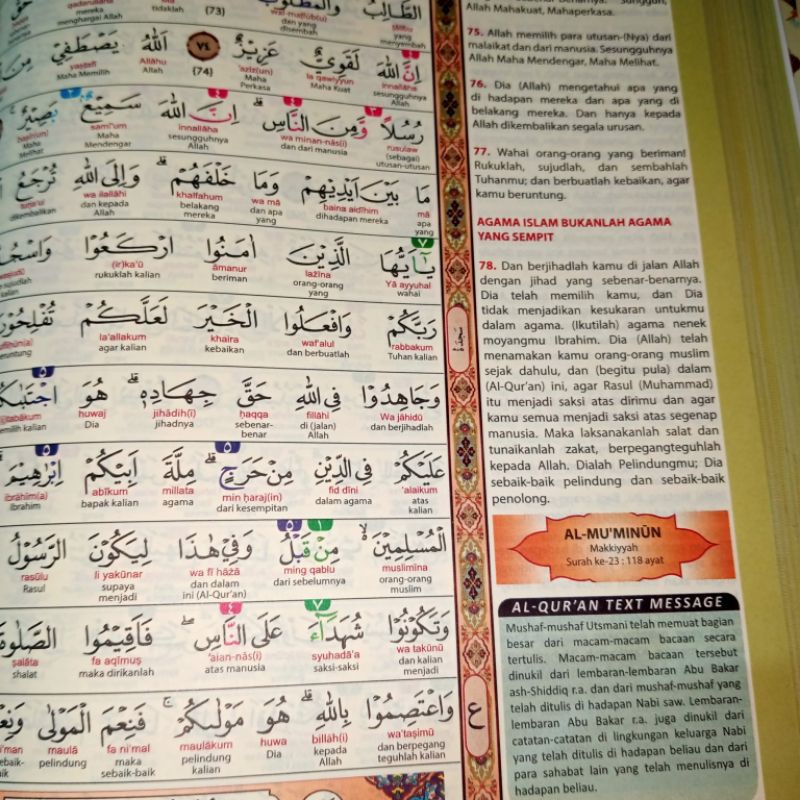 الطَّالِبُ وَالْمَطْلُوْبُ
wal-maṭlūb(u) (73)
menyembah dan yang disembah mereka menghargai Allah
اِنَّ اللّٰهَ لَقَوِيٌّ عَزِيْزٌ ٧٤ اَللّٰهُ يَصْطَفِيْ مِنَ
innallāha la qawiyyun ‘azīz(un) (74) Allāhu yaṣṭafī
sesungguhnya Allah Maha Kuat Maha Perkasa Allah Maha Memilih
رُسُلًا وَّمِنَ النَّاسِۗ اِنَّ اللّٰهَ سَمِيْعٌۢ بَصِيْرٌ
rusulaw wa minan-nās(i) innallāha samī‘um
(sebagai) utusan-utusan dan dari manusia sesungguhnya Allah Maha Mendengar Maha Melihat
مَا بَيْنَ اَيْدِيْهِمْ وَمَا خَلْفَهُمْۗ وَاِلَى اللّٰهِ تُرْجَعُ
mā baina aidīhim wa mā khalfahum wa ilallāhi
apa yang dihadapan mereka dan apa yang belakang mereka dan kepada Allah dikembalikan
يٰٓاَيُّهَا الَّذِيْنَ اٰمَنُوا ارْكَعُوْا وَاسْجُ
Yā ayyuhal lażīna āmanur (ir)ka‘ū
wahai orang-orang yang beriman rukuklah kalian
رَبَّكُمْ وَافْعَلُوا الْخَيْرَ لَعَلَّكُمْ تُفْلِحُوْ
rabbakum waf‘alul khaira la‘allakum
Tuhan kalian dan berbuatlah kebaikan agar kalian
وَجَاهِدُوْا فِى اللّٰهِ حَقَّ جِهَادِهٖۗ هُوَ اجْتَبٰىكُ
Wa jāhidū fillāhi ḥaqqa jihādih(ī) huwaj
dan berjihadlah di (jalan) Allah sebenar-benar jihadnya Dia
عَلَيْكُمْ فِى الدِّيْنِ مِنْ حَرَجٍۗ مِلَّةَ اَبِيْكُمْ اِبْرٰهِيْمَ
‘alaikum fid dīni min ḥaraj(in) millata abīkum ibrāhīm(a)
atas kalian dalam agama dari kesempitan agama bapak kalian Ibrahim
الْمُسْلِمِيْنَ ەۙ مِنْ قَبْلُ وَفِيْ هٰذَا لِيَكُوْنَ الرَّسُوْلُ
muslimīna ming qablu wa fī hāżā li yakūnar rasūlu
orang-orang muslim dari sebelumnya dan dalam ini (Al-Qur'an) supaya menjadi Rasul
وَتَكُوْنُوْا شُهَدَاۤءَ عَلَى النَّاسِۖ فَاَقِيْمُوا الصَّلٰوةَ
wa takūnū syuhadā'a ‘alan-nās(i) fa aqīmuṣ ṣalāta
dan kalian menjadi saksi-saksi atas manusia maka dirikanlah shalat
وَاعْتَصِمُوْا بِاللّٰهِۗ هُوَ مَوْلٰىكُمْۚ فَنِعْمَ الْمَوْلٰى وَنِعْ
wa‘taṣimū billāh(i) huwa maulākum fa ni‘mal maulā
dan berpegang teguhlah kalian kepada Allah Dia pelindung kalian maka sebaik-baik pelindung
سجدة
ع
Allah Mahakuat, Mahaperkasa.
75. Allah memilih para utusan-(Nya) dari
malaikat dan dari manusia. Sesungguhnya
Allah Maha Mendengar, Maha Melihat.
76. Dia (Allah) mengetahui apa yang
di hadapan mereka dan apa yang di
belakang mereka. Dan hanya kepada
Allah dikembalikan segala urusan.
77. Wahai orang-orang yang beriman!
Rukuklah, sujudlah, dan sembahlah
Tuhanmu; dan berbuatlah kebaikan, agar
kamu beruntung.
AGAMA ISLAM BUKANLAH AGAMA
YANG SEMPIT
78. Dan berjihadlah kamu di jalan Allah
dengan jihad yang sebenar-benarnya.
Dia telah memilih kamu, dan Dia
tidak menjadikan kesukaran untukmu
dalam agama. (Ikutilah) agama nenek
moyangmu Ibrahim. Dia (Allah) telah
menamakan kamu orang-orang muslim
sejak dahulu, dan (begitu pula) dalam
(Al-Qur'an) ini, agar Rasul (Muhammad)
itu menjadi saksi atas dirimu dan agar
kamu semua menjadi saksi atas segenap
manusia. Maka laksanakanlah salat dan
tunaikanlah zakat, berpegangteguhlah
kepada Allah. Dialah Pelindungmu; Dia
sebaik-baik pelindung dan sebaik-baik
penolong.
AL-MU'MINŪN
Makkiyyah
Surah ke-23 : 118 ayat
AL-QUR'AN TEXT MESSAGE
Mushaf-mushaf Utsmani telah memuat bagian
besar dari macam-macam bacaan secara
tertulis. Macam-macam bacaan tersebut
dinukil dari lembaran-lembaran Abu Bakar
ash-Shiddiq r.a. dan dari mushaf-mushaf yang
telah ditulis di hadapan Nabi saw. Lembaran-
lembaran Abu Bakar r.a. juga dinukil dari
catatan-catatan di lingkungan keluarga Nabi
yang telah ditulis di hadapan beliau dan dari
para sahabat lain yang telah menulisnya di
hadapan beliau.